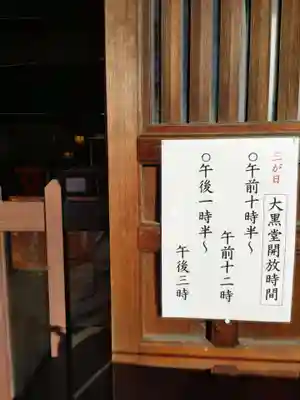 三が日
大黒堂開放時間
○午前十時半～
午前十二時
○午後一時半～
午後三時